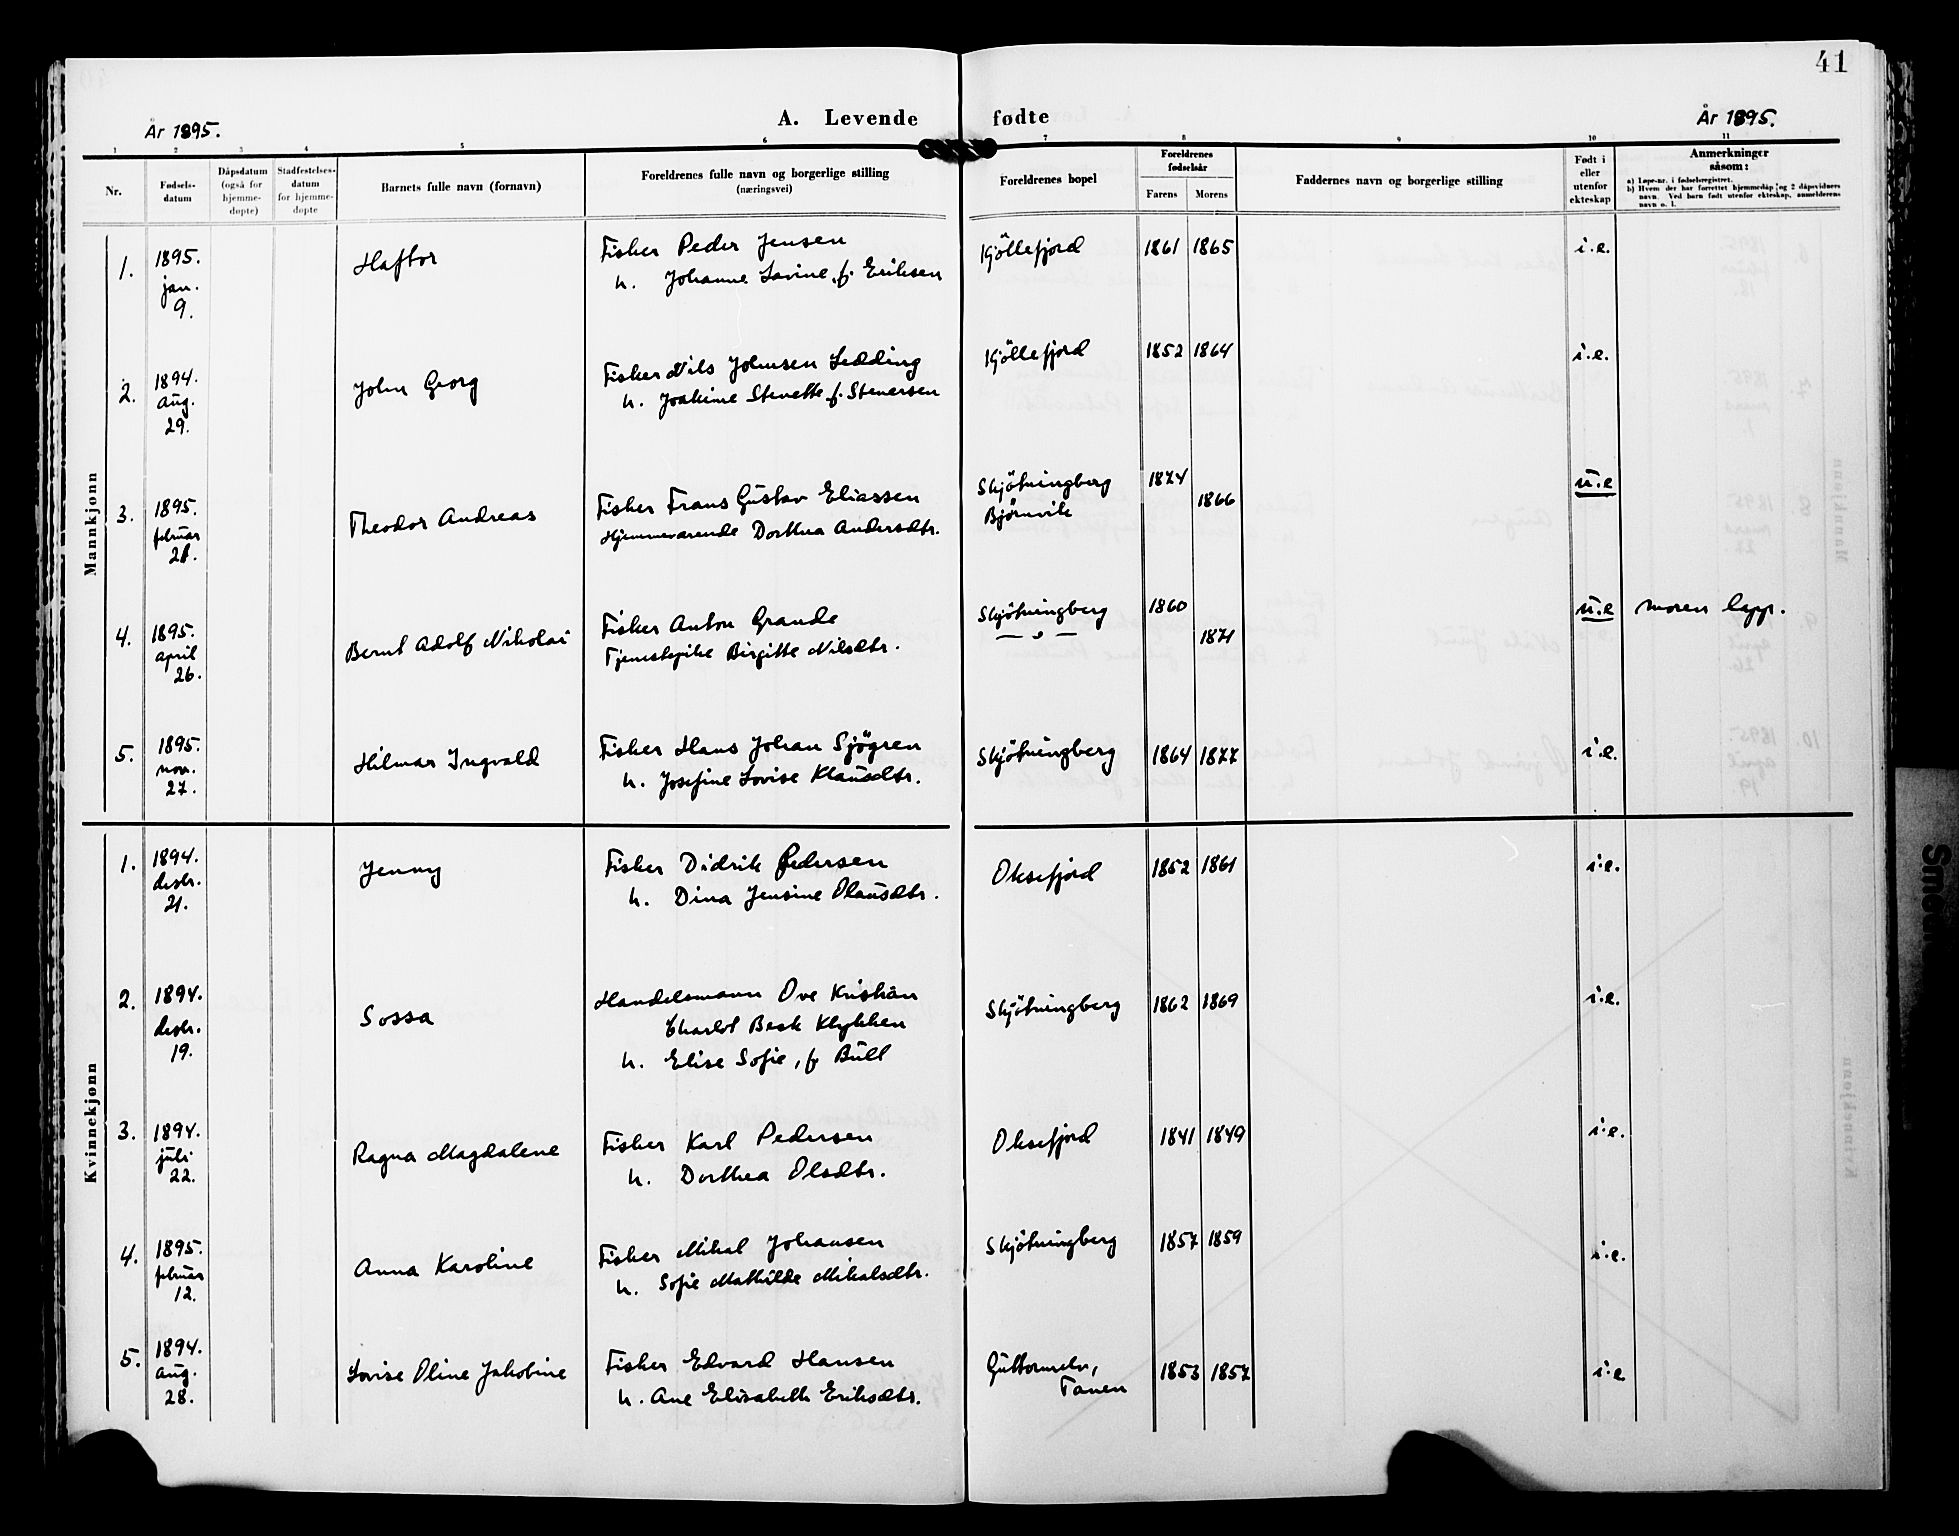 41
År 1895.
A. Levende fødte
År 1895.
1 2 3 4 5 6 7 8 9 10 11
Nr.
Fødsels-
datum
Dåpsdatum
(også for
hjemme-
døpte)
Stadfestelses-
datum
for hjemme-
døpte
Barnets fulle navn (fornavn)
Foreldrenes fulle navn og borgerlige stilling
(næringsvei)
Foreldrenes bopel
Foreldrenes
fødselsår
Farens Morens
Faddernes navn og borgerlige stilling
Født i
eller
utenfor
ekteskap
Anmerkninger
såsom:
a) Løpe-nr. i fødselsregistret.
b) Hvem der har forrettet hjemmedåp og 2 dåpsvidners
navn. Ved barn født utenfor ekteskap, anmelderens
navn o. l.
Mannkjønn
1.
1895.
jan.
9.
Haftor
Fisker Peder Jensen
h. Johanne Lavine, f. Eriksen
Kjöllefjord
1861 1865
i.e.
2.
1894.
Aug.
29.
John Georg
Fisker Nils Johnsen Ledding
h. Joakime Stenette f. Stenersen
Kjöllefjord
1852 1864
i.e.
3.
1895.
februar
21.
Theodor Andreas
Fisker Frans Gustav Eliassen
Hjemmeværende Dorthea Andersdtr.
Skjötningberg
Bjørnvik
1874
1866
u.e
4.
1895.
april
26.
Bernt Adolf Nikolai
Fisker Anton Grande
Tjenestepike Birgitte Nilsdtr.
Skjötningberg
— „ —
1860
1871
u.e
moren lapp.
5.
1895.
nov.
27.
Hilmar Ingvald
Fisker Hans Johan Sjögren
h. Josefine Lovise Klausdtr.
Skjötningberg
1864 1877
i.e.
Kvinnekjønn
1.
1894.
desbr.
21.
Jenny
Fisker Didrik Pedersen
h. Dina Jensine Olausdtr.
Oksefjord
1852 1861
i.e.
2.
1894.
desbr.
19.
Sossa
Handelsmann Ove Kristian
Charlot Besk Klykken
h. Elise Sofie, f. Bull
Skjötningberg
1862 1869
i.e.
3.
1894.
juli
22.
Ragna Magdalene
Fisker Karl Pedersen
h. Dorthea Olsdtr.
Oksefjord
1841 1849
i.e.
4.
1895.
februar
12.
Anna Karoline
Fisker Mikal Johansen
h. Sofie Mathilde Mikalsdtr.
Skjötningberg
1857 1859
i.e.
5.
1894.
Aug.
28.
Lovise Oline Jakobine
Fisker Edvard Hansen
h. Ane Elisabeth Eriksdtr.
Guttormelv,
Tanen
1853 1857
i.e